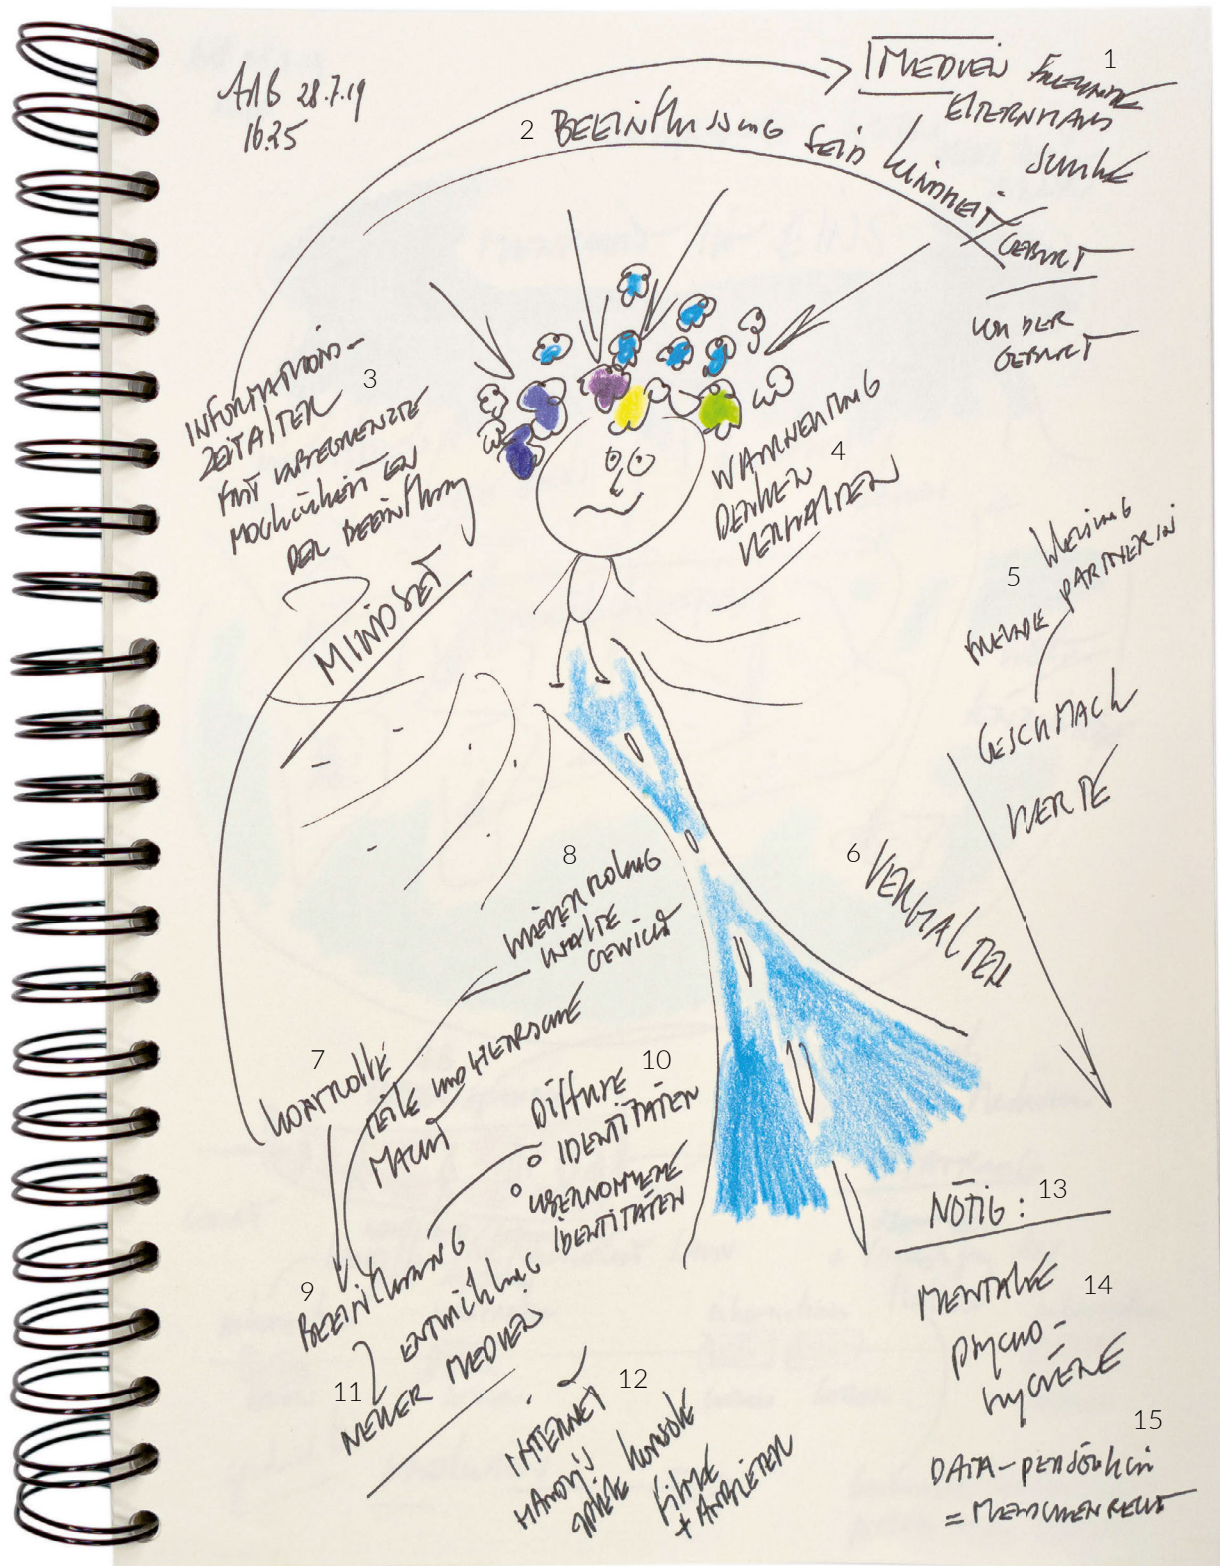 28.7.19
16.25
MEDIEN FREUNDE 1
ELTERNHAUS
SCHULE
2 BEEINFLUSSUNG SEID KINDHEIT
GEBURT
VON DER
GEBURT
INFORMATIONS-
ZEITALTER 3
MIT UNBEGRENZTE
MÖGLICHKEITEN
DER BEEINFLUSSUNG
MINDSET
WAHRNEHMUNG
DENKEN 4
VERHALTEN
5 KLEIDUNG
PARTNERIN
FREUNDE
GESCHMACK
WERTE
6 VERHALTEN
8
WIEDERHOLUNG
INHALTE
GEWICHT
7
KONTROLLE
TEILE UND HERRSCHE
MACHT
10
DIFFUSE
IDENTITÄTEN
ÜBERNOMMENE
IDENTITÄTEN
9
BEEINFLUSSUNG
11 ENTWICKLUNG
NEUER MEDIEN
12
INTERNET
HANDYS
SPIELE KONSOLE
FILME
+ ANBIETER
NÖTIG: 13
MENTALE 14
PSYCHO-
HYGIENE
15
DATA-PERSÖNLICH
= MENSCHENRECHT